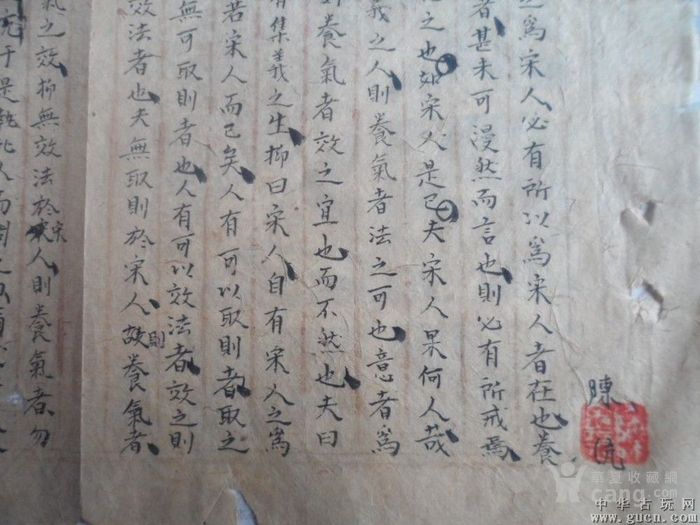 陳侃
之為宋人必有所以為宋人者在也養
者甚未可漫然而言也則必有所戒焉
之也如宋人是已夫宋人果何人哉
義之人則養氣者法之可也意者為
養氣者效之宜也而不然也夫曰
有集義之生抑曰宋人自有宋人之為
若宋人而已矣人有可以取則者取之
無可取則者也人有可以效法者效之則
效法者也夫無取則於宋人故則養氣者
氣之效抑無效法於宋人則養氣者勿
于是執此人而
華夏收藏網
cang.com
中华古玩网
www.gucn.com